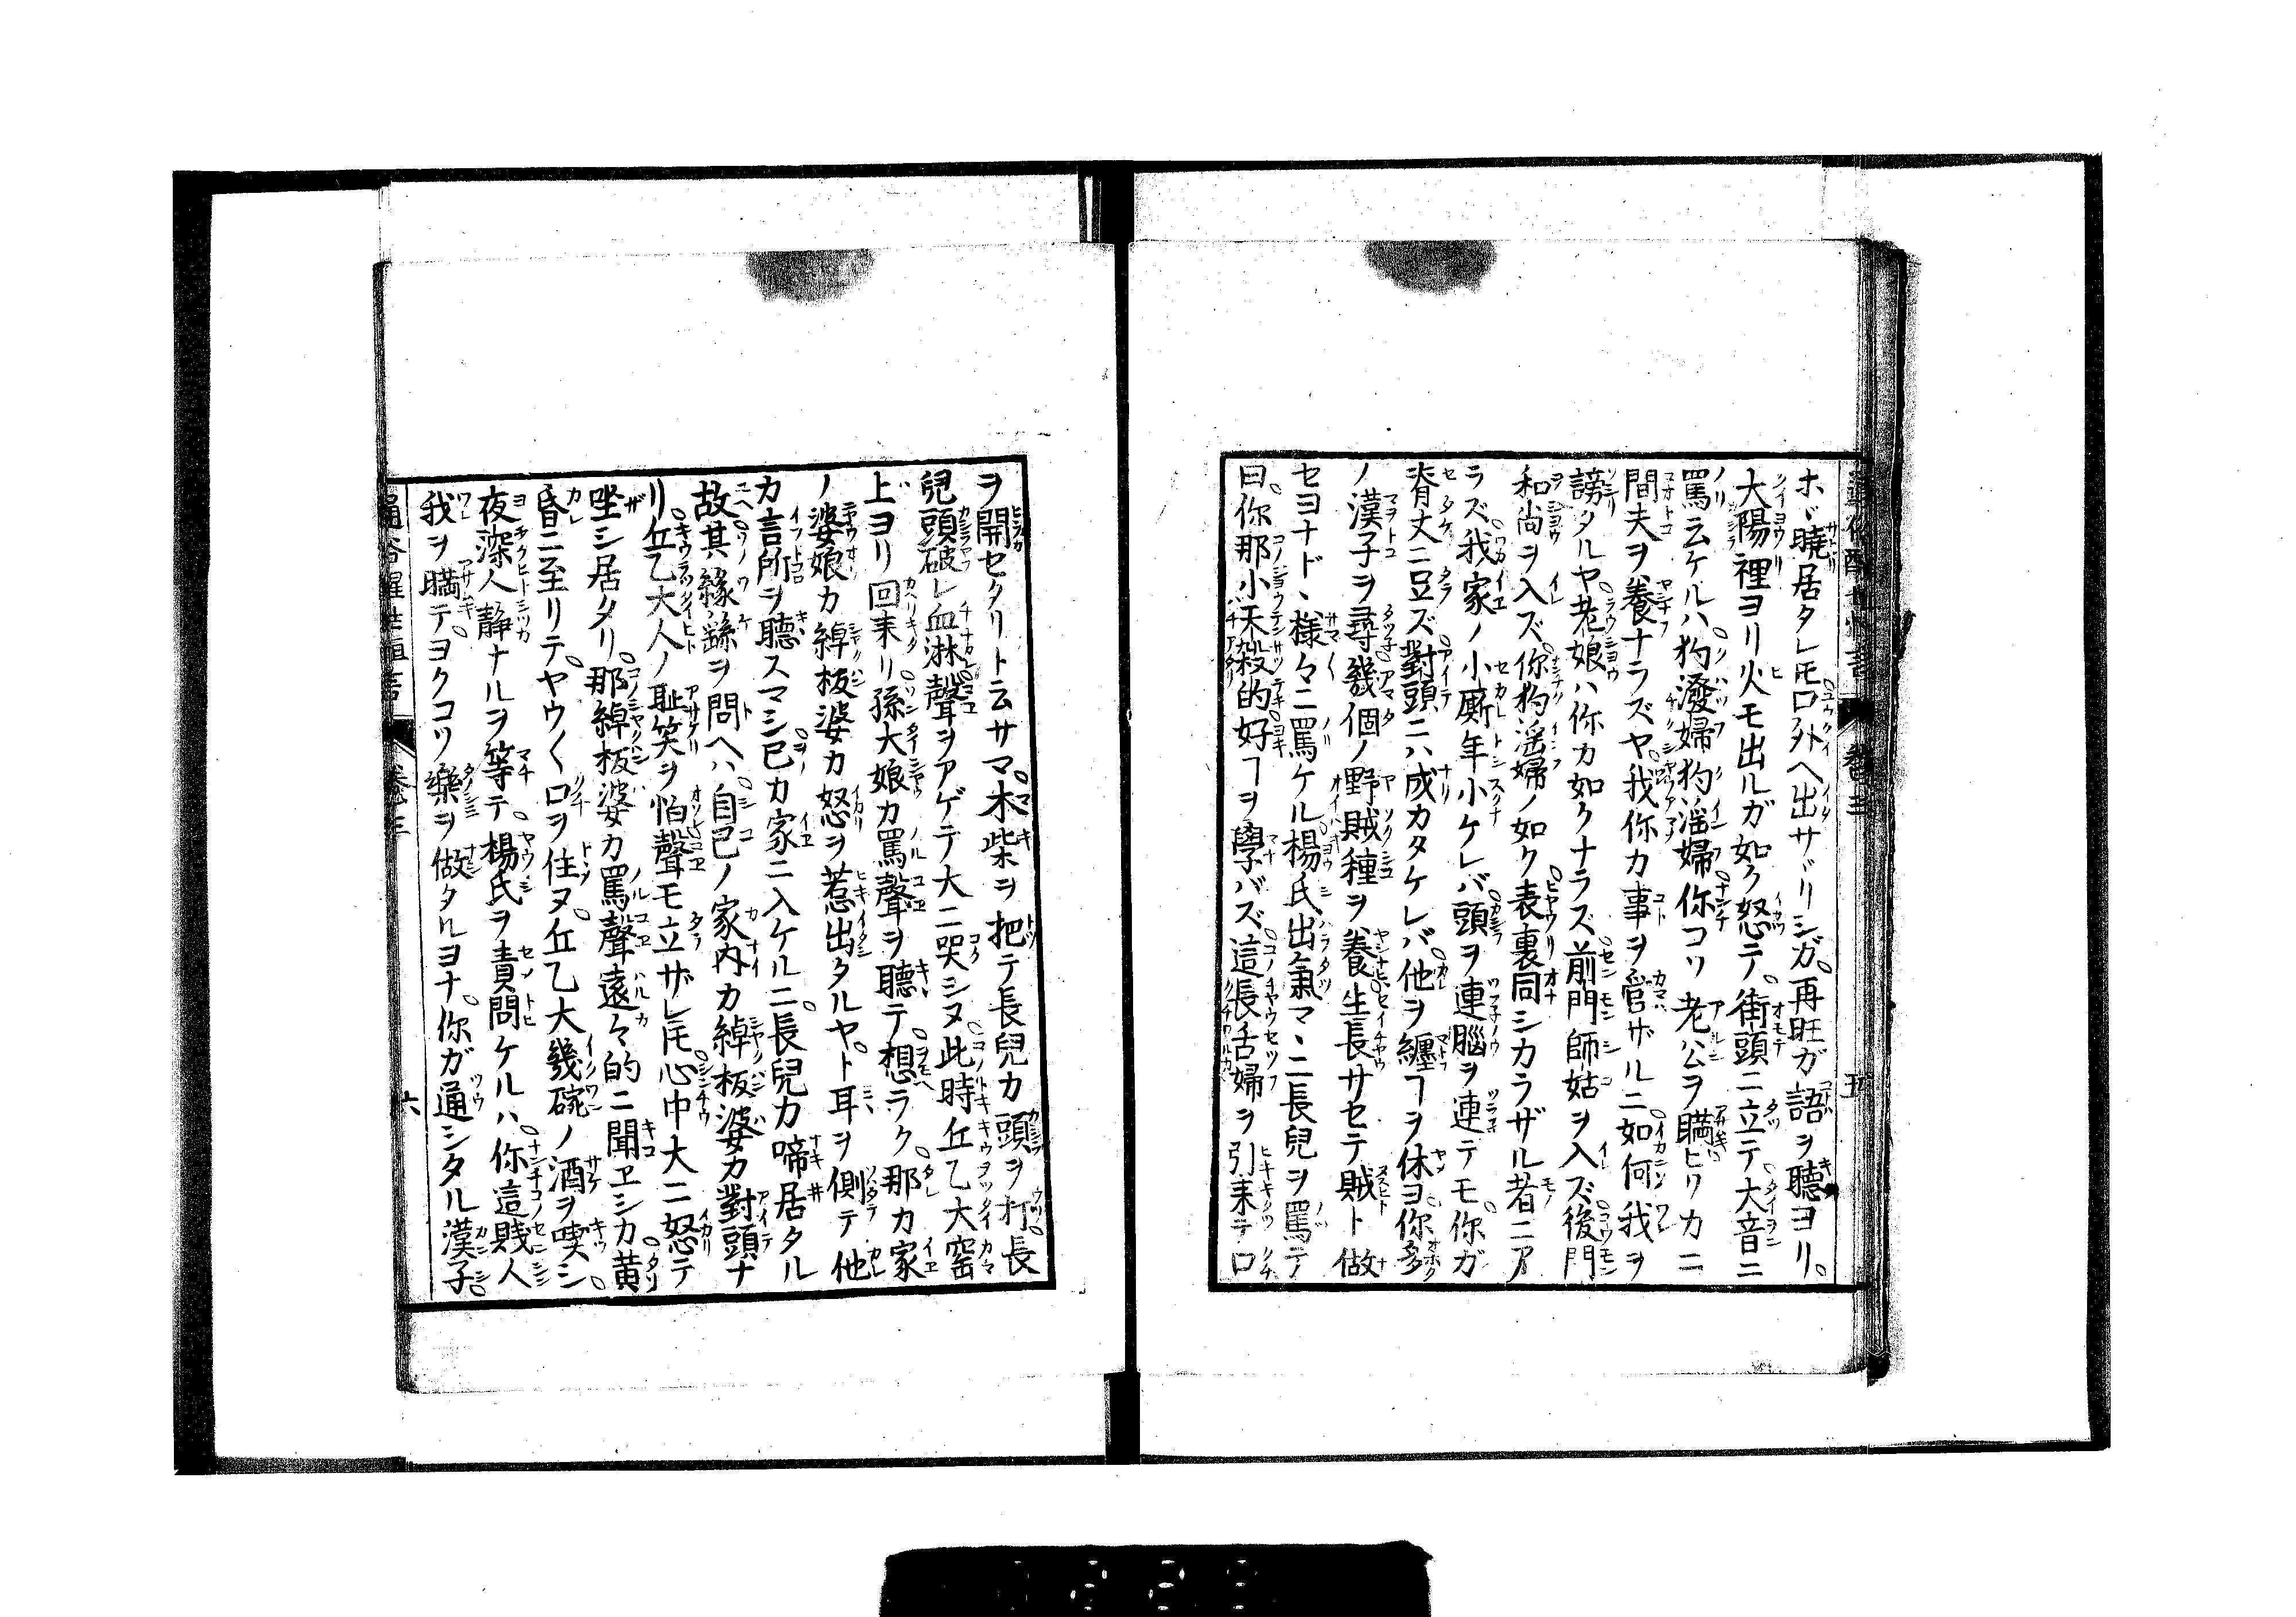 ホヾ曉居タレ𪜈口外ヘ出サヾリシガ。再旺ガ語ヲ聽ヨリ。
大陽裡ヨリ火モ出ルガ如ク怒テ。街頭ニ立テ大音ニ
罵云ケルハ狗潑婦狗滛婦你コソ老公ヲ瞞ヒソカニ
間夫ヲ養ナラズヤ我你カ事ヲ管ザルニ如何我ヲ
謗タルヤ老娘ハ你カ如クナラズ前門師姑ヲ入ズ後門
和尚ヲ入ズ你狗滛婦ノ如ク表裏同シカラザル者ニア
ラズ我家ノ小厮年小ケレバ頭ヲ連腦ヲ連テモ你ガ
脊丈ニ豆ズ對頭ニハ成カタケレバ他ヲ纏ヿヲ休ヨ你多
ノ漢子ヲ尋幾個ノ野賊種ヲ養生長サセテ賊ト做
セヨナド様々ニ罵ケル楊氏出氣マヽニ長兒ヲ罵テ
曰。你那小天殺的好ヿヲ學バズ這長舌婦ヲ引来テ口
五
ヲ開セタリト云サマ木柴ヲ把テ長兒カ頭ヲ打長
兒頭破レ血淋聲ヲアゲテ大ニ哭シヌ此時丘乙大窑
上ヨリ回来リ孫大娘カ罵聲ヲ聽テ想ラク那カ家
ノ婆娘カ綽板婆カ怒ヲ惹出タルヤト耳ヲ側テ他
カ言所ヲ聽スマシ已カ家ニ入ケルニ長兒カ啼居タル
故其緣蹤ヲ問ヘハ自己ノ家内カ綽板婆カ對頭ナ
リ丘乙大人ノ耻笑ヲ怕聲モ立ザレ𪜈心中大ニ怒テ
坐シ居タリ那綽板婆カ罵聲遠々的ニ聞ヱシカ黄
昏ニ至リテヤウ〱口ヲ住ヌ丘乙大幾碗ノ酒ヲ喫シ
夜深人静ナルヲ等テ楊氏ヲ責問ケルハ你這賤人
我ヲ瞞テヨクコソ樂ヲ做タルヨナ。你ガ通シタル漢子
六